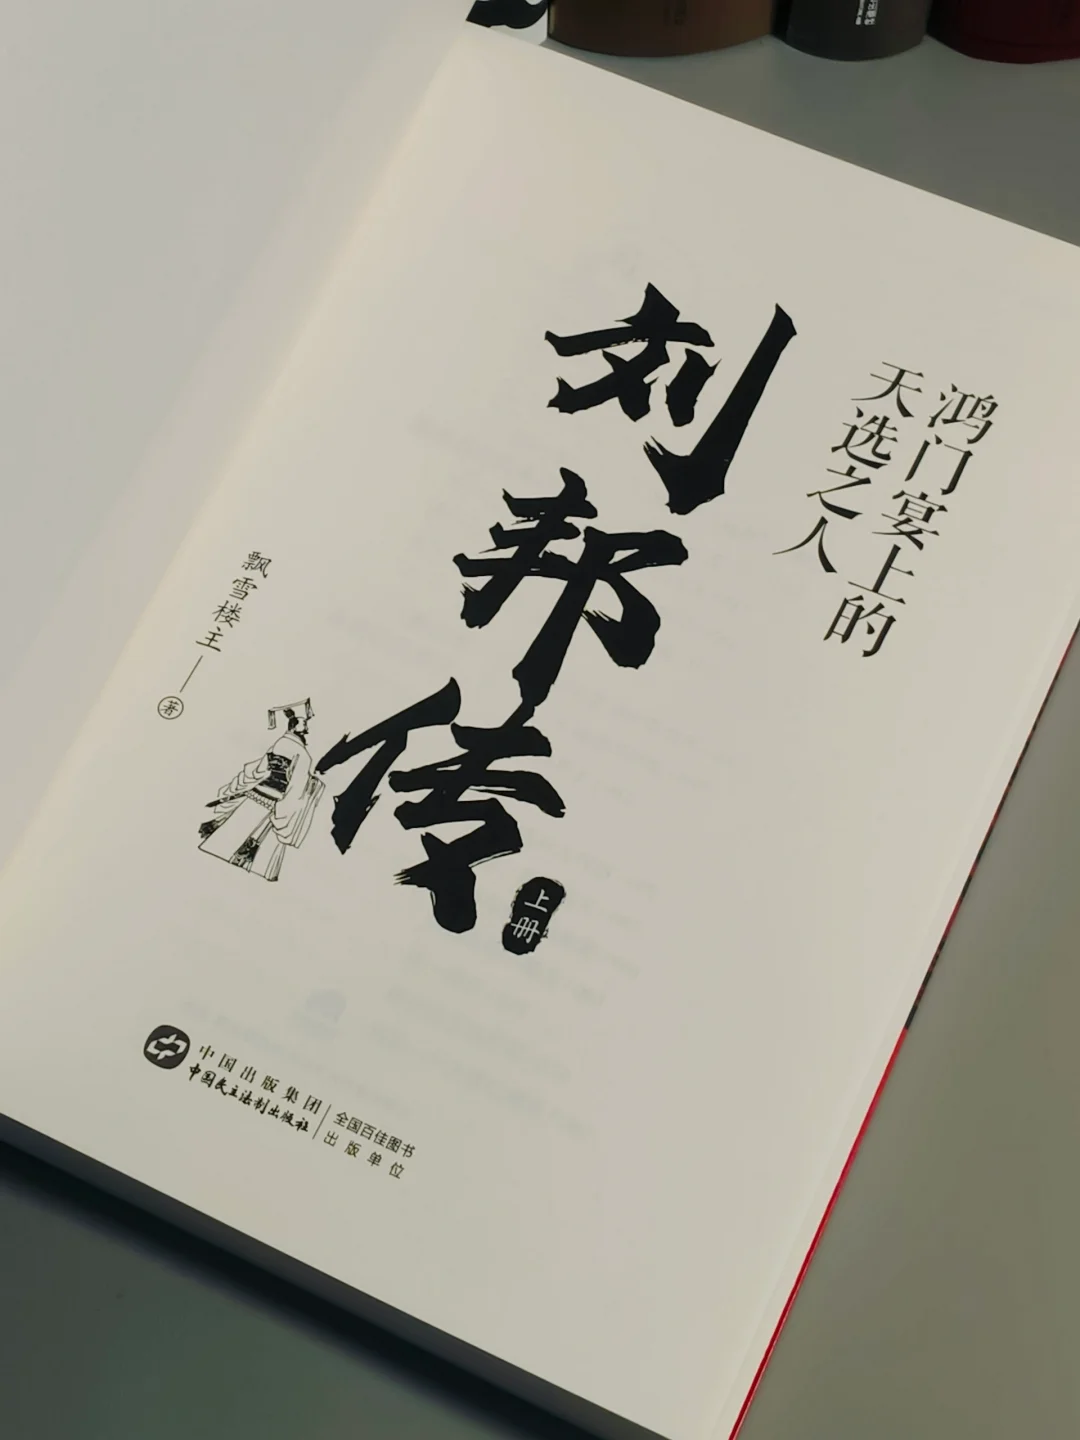 鸿门宴上的
天选之人
刘邦传
上册
飘雪楼主——著
中国出版集团
中国民主法制出版社
全国百佳图书
出版单位